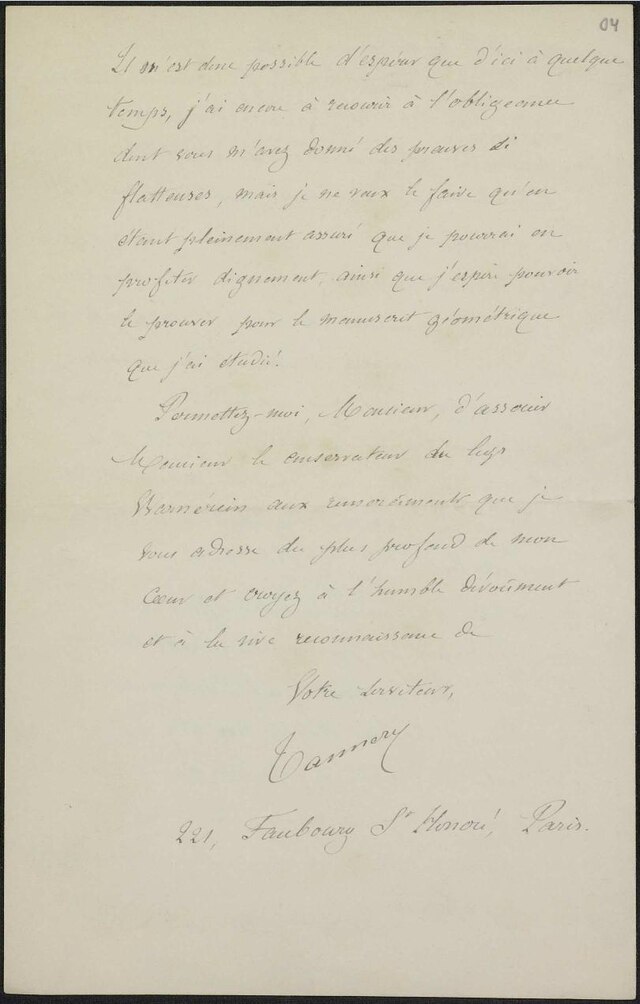 04
Il m'est donc possible d'espérer que d'ici à quelque
temps, j'ai encore à recourir à l'obligeance
dont vous m'avez donné des preuves si
flatteuses, mais je ne veux le faire qu'en
étant pleinement assuré que je pourrai en
profiter dignement, ainsi que j'espère pouvoir
le prouver pour le manuscrit géométrique
que j'ai étudié.
Permettez-moi, Monsieur, d'associer
Monsieur le conservateur du legs
Warnérien aux remerciments que je
vous adresse du plus profond de mon
cœur et croyez à l'humble dévoûment
et à la vive reconnaissance de
Votre serviteur,
Tannery
221, Faubourg St Honoré, Paris.